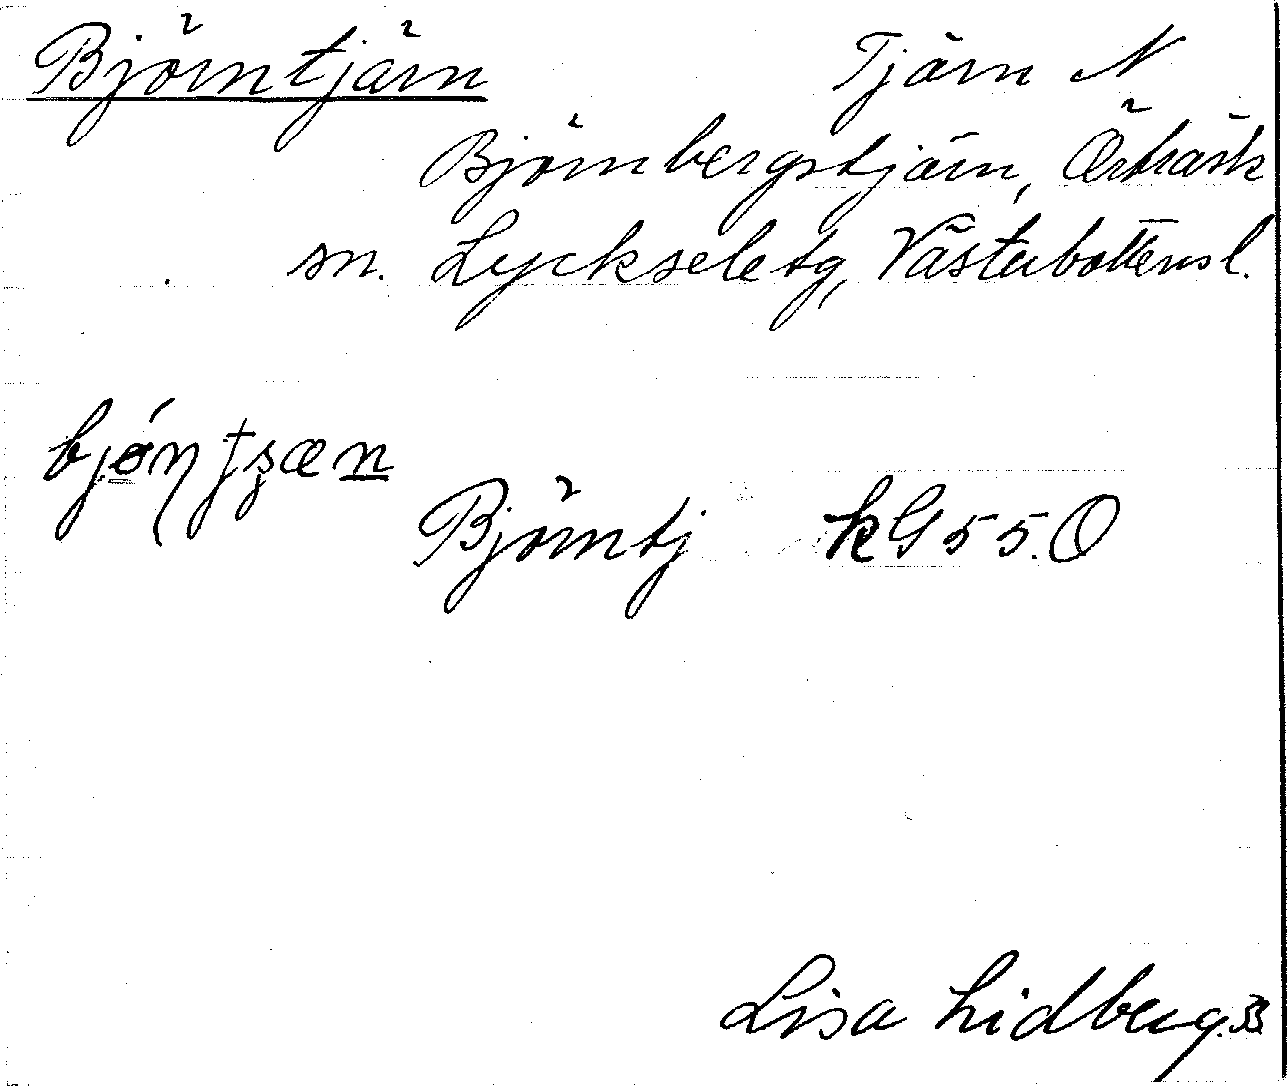 Björntjärn
Tjärn N
Björnbergstjärn, Örträsk
sn. Lycksele tg, Västerbottensl.
Björntj kG 55. O
Lisa Lidberg. 33